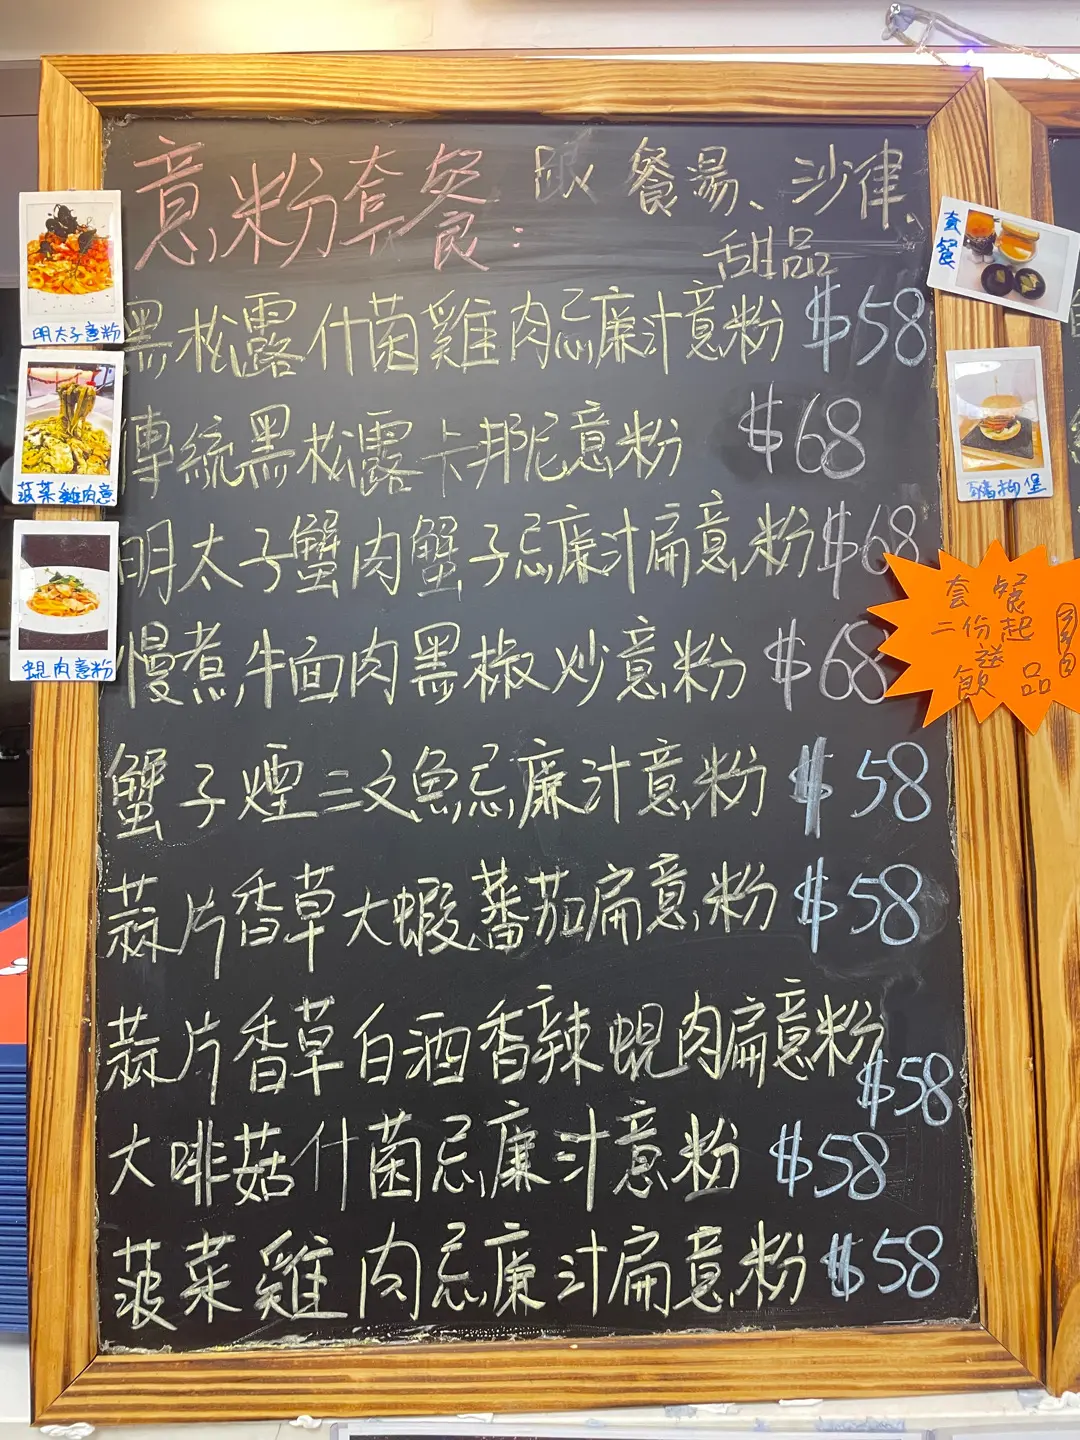 意粉套餐: 跟 餐湯、沙律、
甜品
黑松露什菌雞肉忌廉汁意粉 $58
傳統黑松露卡邦尼意粉 $68
明太子蟹肉蟹子忌廉汁扁意粉 $68
慢煮牛面肉黑椒炒意粉 $68
蟹子煙三文魚忌廉汁意粉 $58
蒜片香草大蝦蕃茄扁意粉 $58
蒜片香草白酒香辣蜆肉扁意粉
$58
大啡菇什菌忌廉汁意粉 $58
菠菜雞肉忌廉汁扁意粉 $58
明太子意粉
菠菜雞肉意
蜆肉意粉
套餐
豬柳堡
套餐
二份起
送
飲品